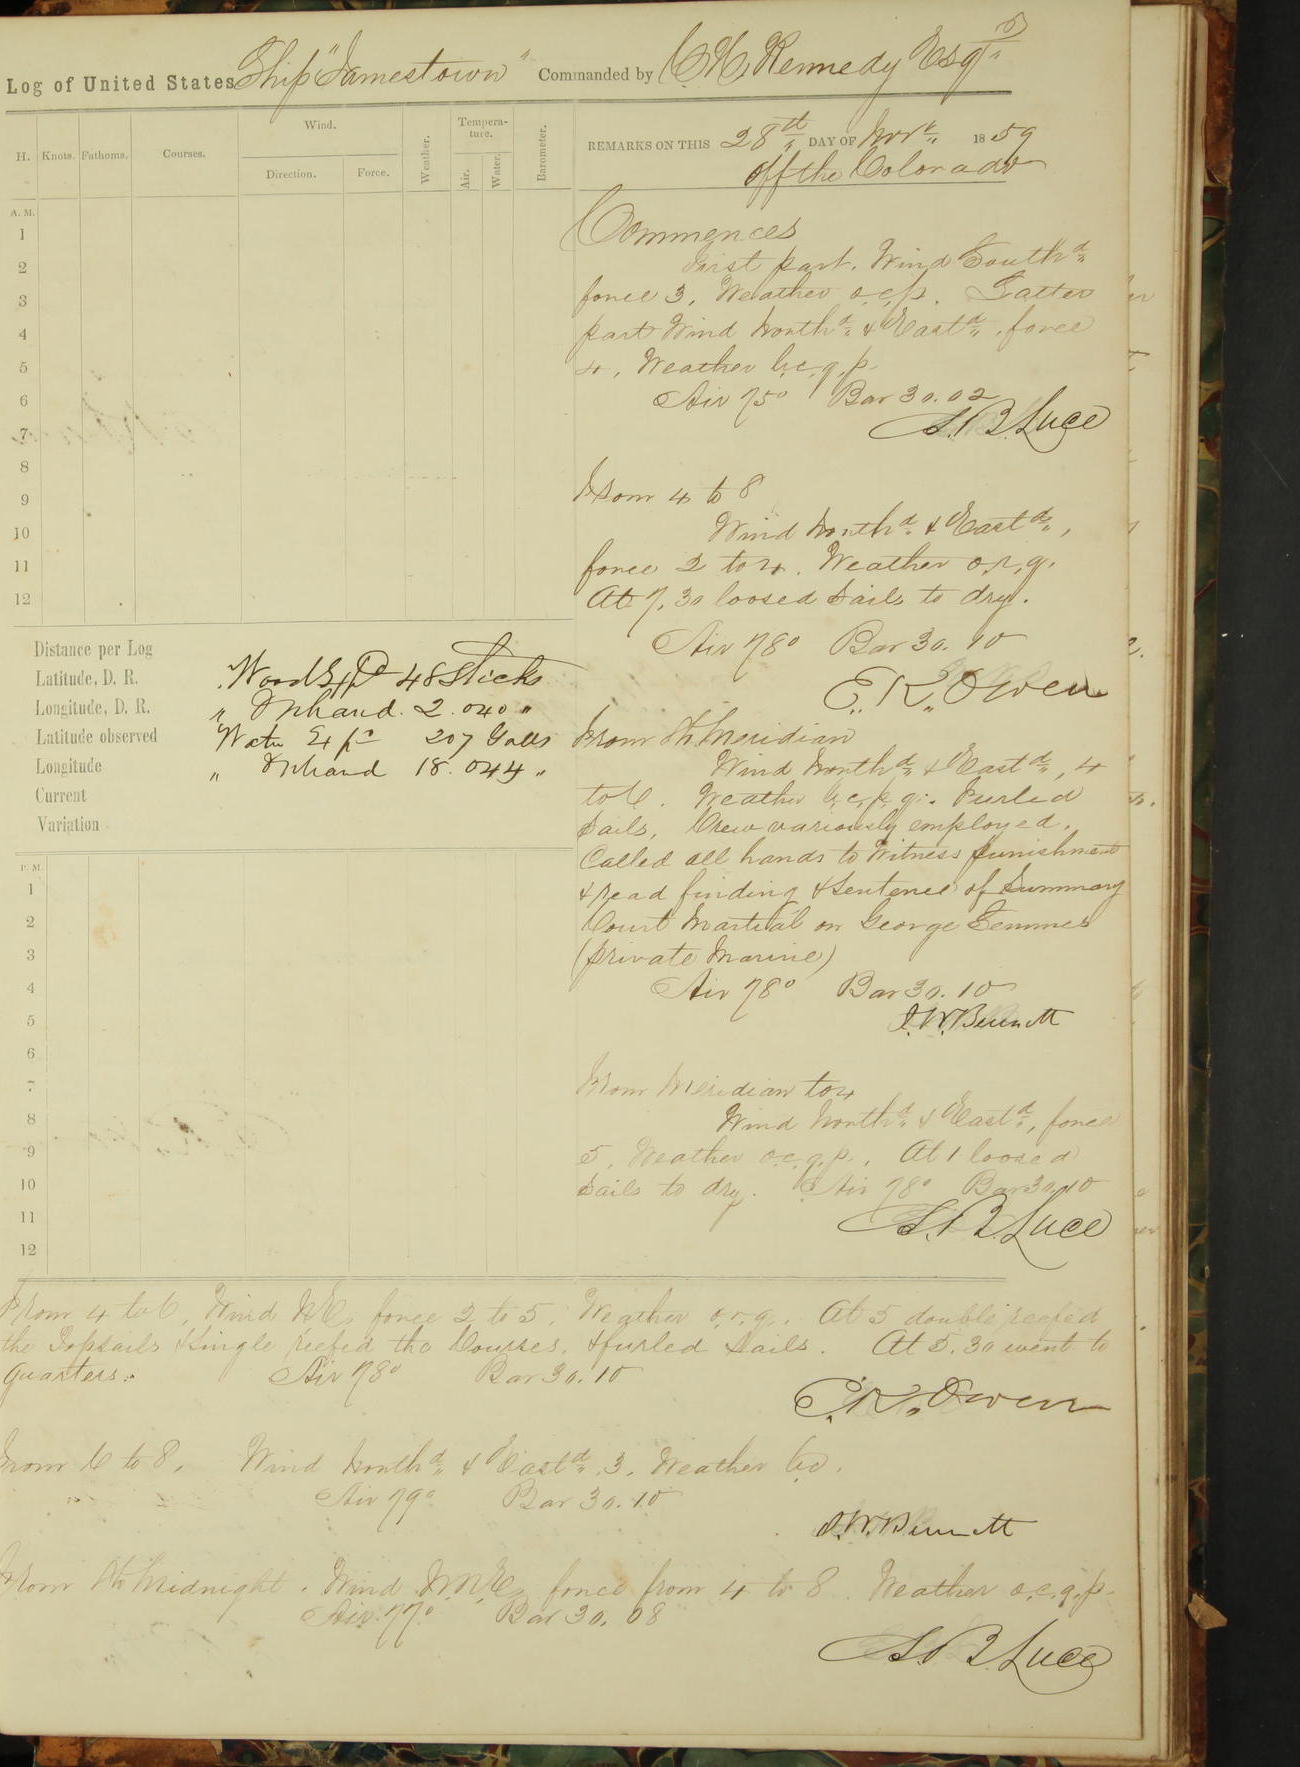 Log of United States Ship "Jamestown" Commanded by C. H. Kennedy Esqr
H. Knots. Fathoms. Courses. Wind. Direction. Force. Weather. Tempera-ture. Air. Water. Barometer.
REMARKS ON THIS 28th DAY OF Novr 1859
off the Colorado
A. M.
1
2
3
4
5
6
7
8
9
10
11
12
Commences
First part. Wind Southd
force 3, Weather o.c.p. Latter
part Wind Northd & Eastd, force
4, Weather b.c.q.p.
Air 75° Bar 30.02
S. B. Luce
From 4 to 8
Wind Northd & Eastd,
force 2 to 4. Weather o.r.g.
At 7.30 loosed Sails to dry.
Air 78° Bar 30.10
E. K. Owen
Distance per Log
Latitude, D. R.
Longitude, D. R.
Latitude observed
Longitude
Current
Variation
Wood Expd 48 Sticks
" On hand. 2.040 "
Water Expd 207 Galls
" On hand 18.044 "
From 8 to Meridian
Wind Northd & Eastd, 4
to 6. Weather b.c.p.q. Furled
Sails. Crew variously employed.
Called all hands to Witness punishment
& read finding & Sentence of Summary
Court Martial on George Semmes
(private Marine)
Air 78° Bar 30.10
J. W. Bennett
P. M.
1
2
3
4
5
6
7
8
9
10
11
12
From Meridian to 4
Wind Northd & Eastd, force
5, Weather o.c.q.p. At 1 loosed
Sails to dry. Air 78° Bar 30.10
S. B. Luce
From 4 to 6, Wind NE, force 2 to 5, Weather o.r.g. At 5 double reefed
the Topsails & Single reefed the Courses, & furled Sails. At 5.30 went to
quarters. Air 78° Bar 30.10
E. K. Owen
From 6 to 8. Wind Northd & Eastd 3. Weather b.c.
Air 79° Bar 30.10
J. W. Bennett
From 8 to Midnight. Wind N.N.E. force from 4 to 8. Weather o.c.q.p.
Air 77° Bar 30.08
S. B. Luce